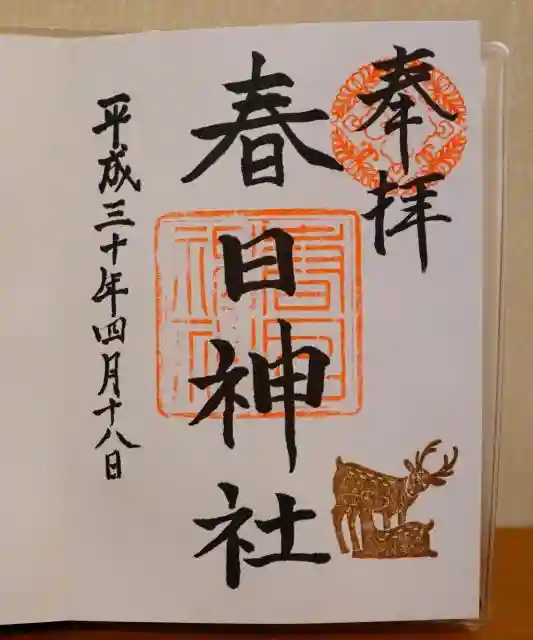 奉拝
春日神社
平成三十年四月十八日